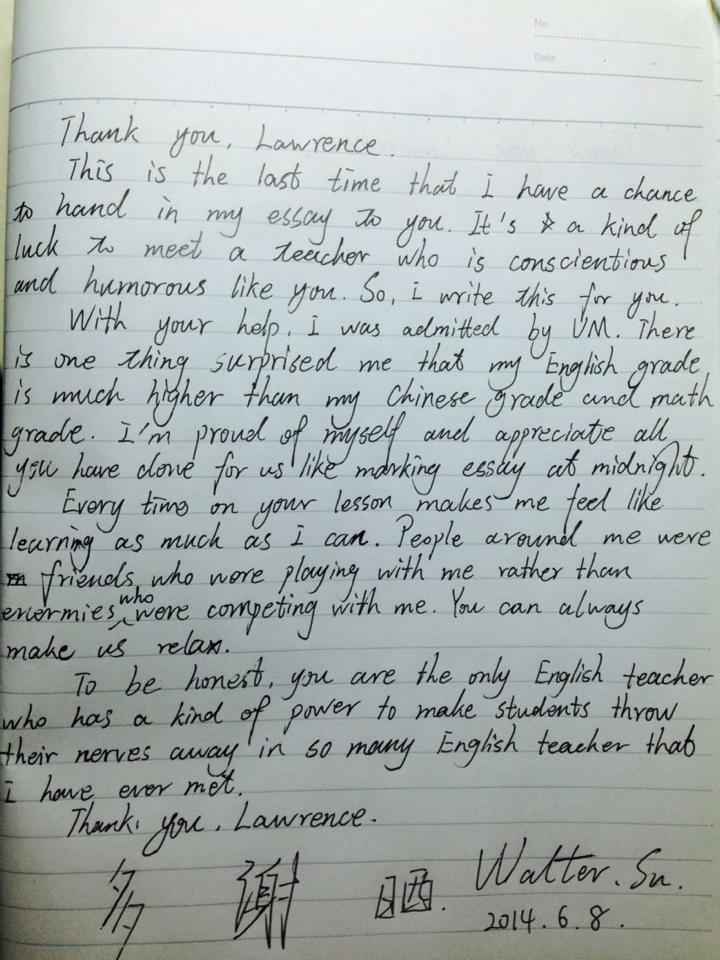 No.
Date
Thank you, Lawrence.
This is the last time that I have a chance
to hand in my essay to you. It's a kind of
luck to meet a teacher who is conscientious
and humorous like you. So, i write this for you.
With your help, I was admitted by UM. There
is one thing surprised me that my English grade
is much higher than my Chinese grade and math
grade. I'm proud of myself and appreciate all
you have done for us like marking essay at midnight.
Every time on your lesson makes me feel like
learning as much as I can. People around me were
friends who were playing with me rather than
enermies who were competing with me. You can always
make us relax.
To be honest, you are the only English teacher
who has a kind of power to make students throw
their nerves away in so many English teacher that
i have ever met.
Thank you, Lawrence.
多 謝 晒. Walter. Su.
2014.6.8.